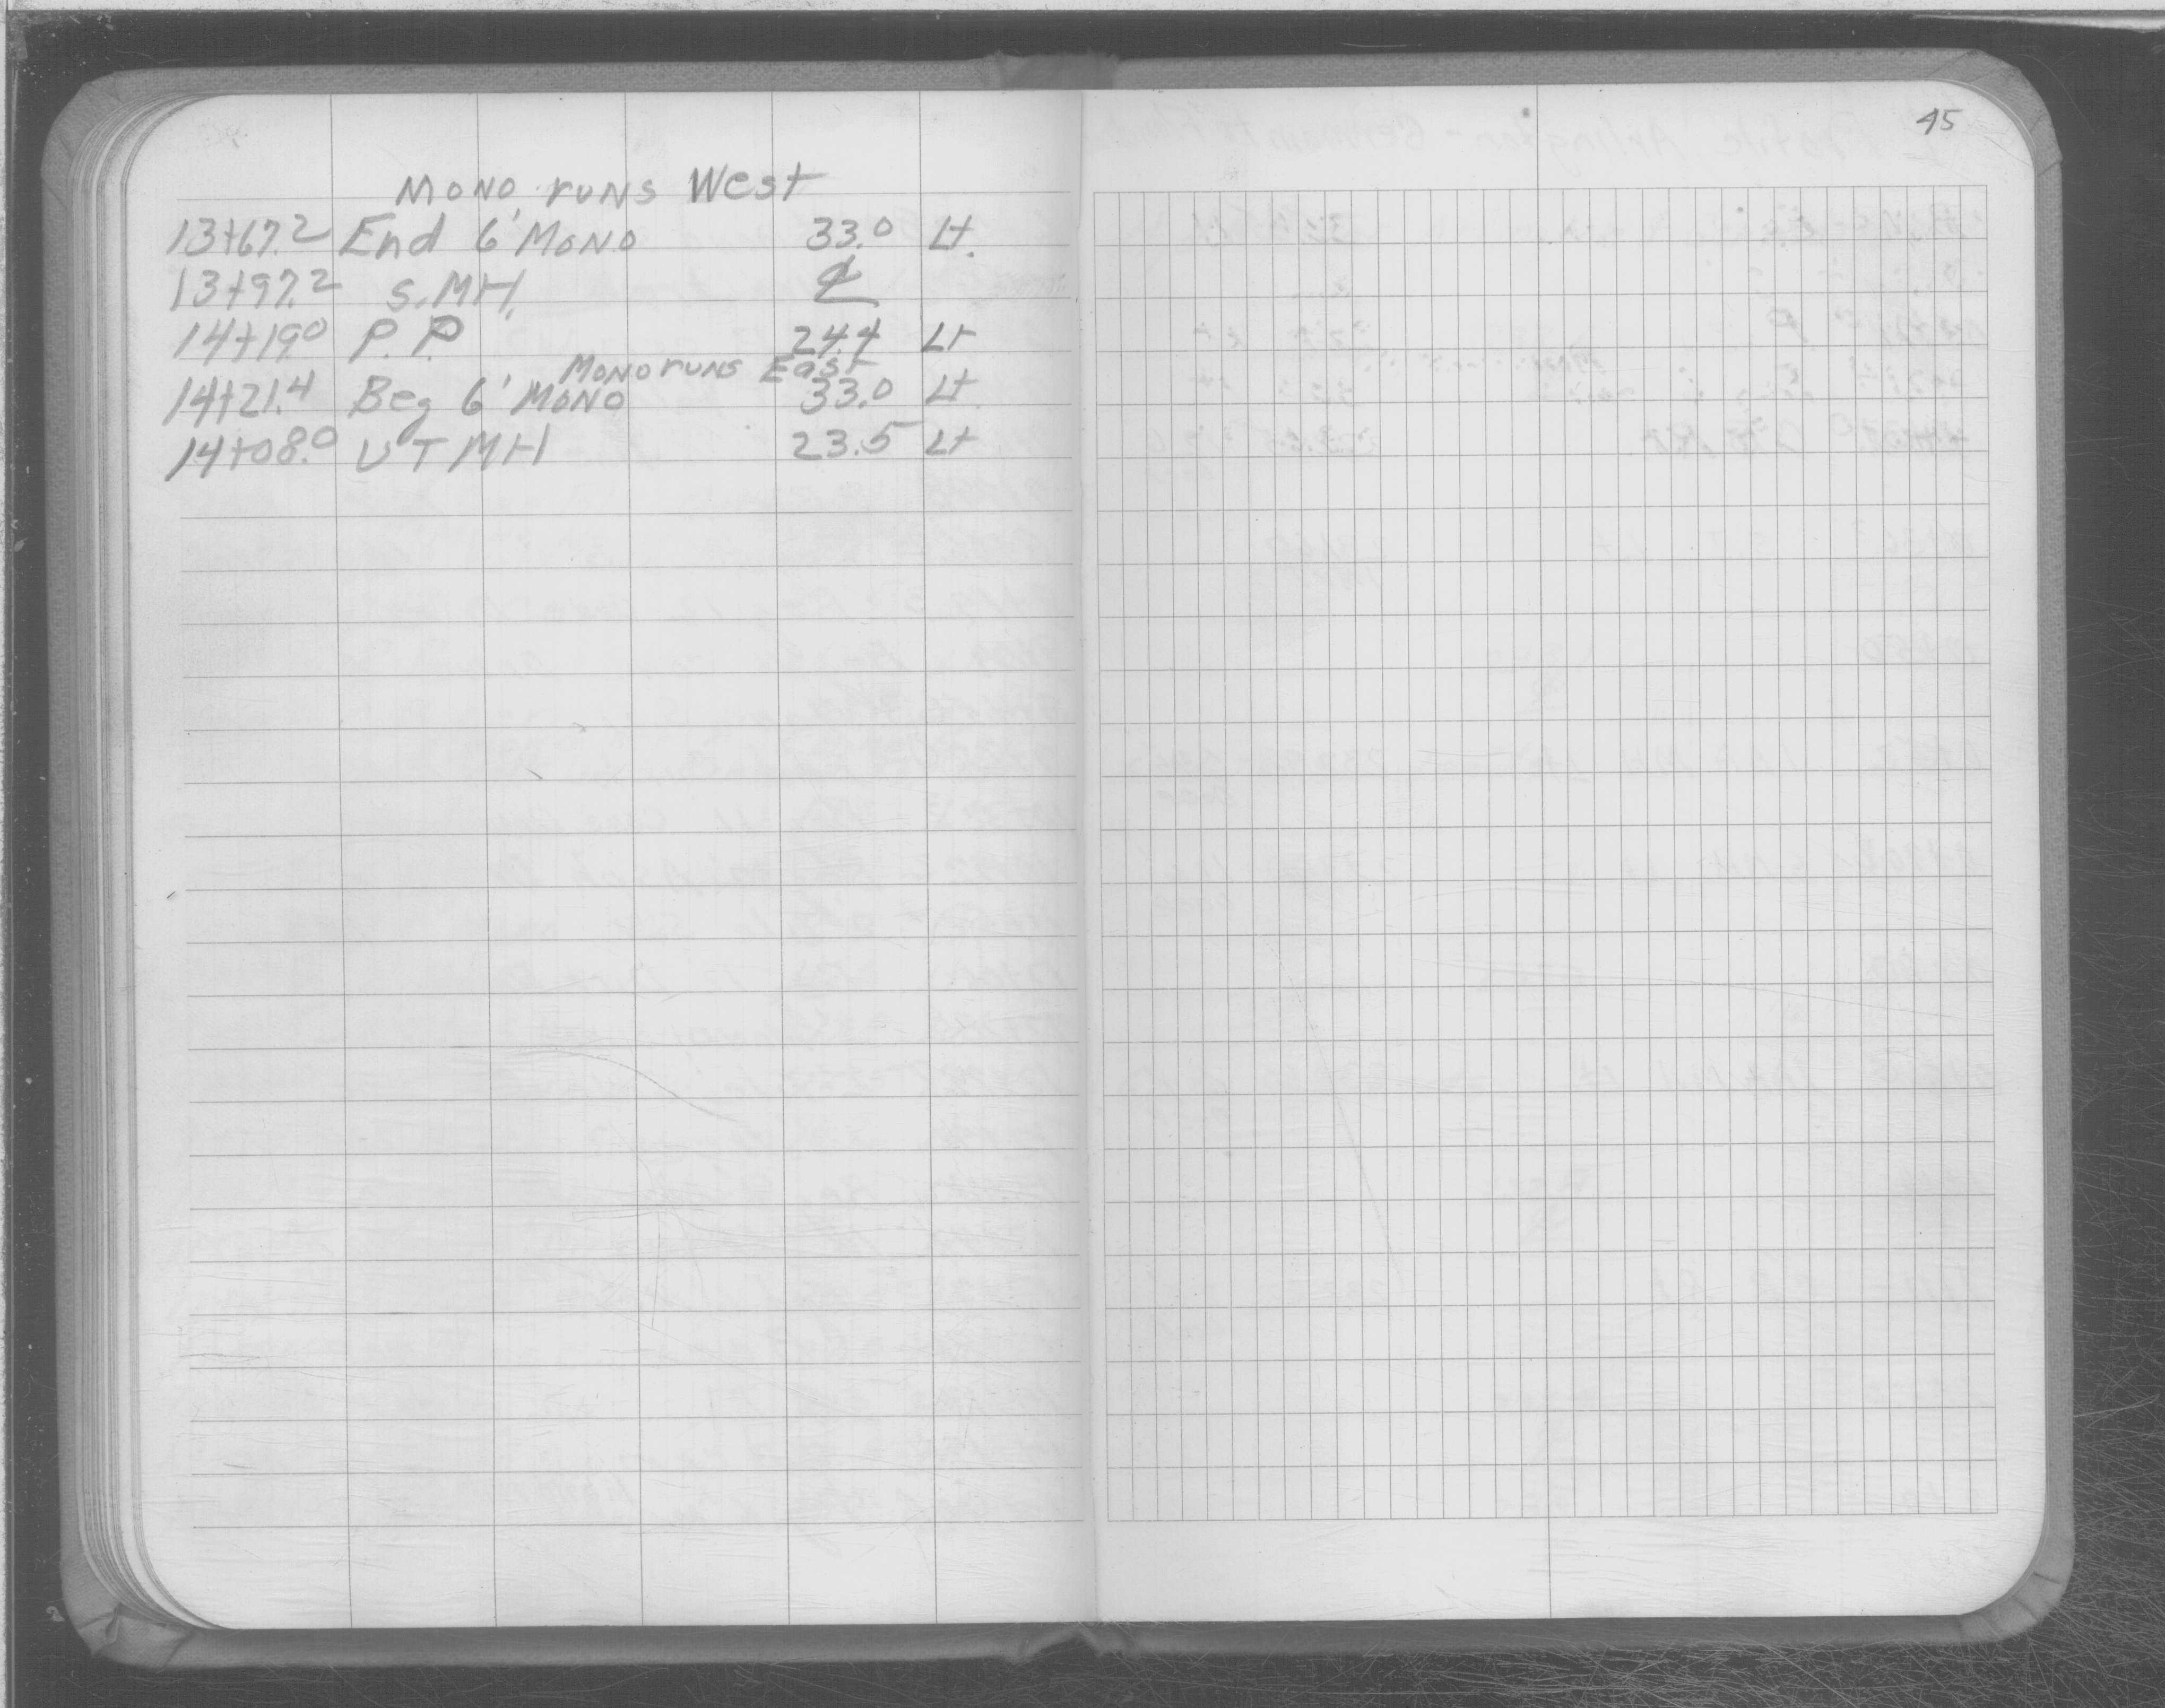 45
Mono. runs West
13+67.2 End 6' Mono 33.0 Lt.
13+97.2 S.MH. ℄
14+19.0 P.P. 24.4 Lt
Mono runs East
14+21.4 Beg 6' Mono 33.0 Lt
14+08.0 UT MH 23.5 Lt